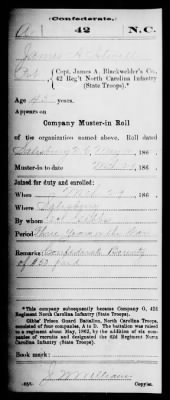 (Confederate.)
42 N.C.
James
Pvt, Capt. James A. Blackwelder's Co.,
42 Reg't North Carolina Infantry
(State Troops).*
Age 43 years.
Appears on
Company Muster-in Roll
of the organization named above. Roll dated
Salisbury N.C. May 186
Muster-in to date 186
Joined for duty and enrolled:
When 186
Where Salisbury
By whom Gibbs
Period Three years or the War
Remarks: Confederate Bounty
of $50 paid
*This company subsequently became Company G, 42d
Regiment North Carolina Infantry (State Troops).
Gibbs' Prison Guard Battalion, North Carolina Infantry,
consisted of four companies, A to D. The battalion was raised
to a regiment about May, 1862, by the addition of six com-
panies of recruits and designated the 42d Regiment North
Carolina Infantry (State Troops).
Book mark:
J. M. Williams
(635) Copyist.